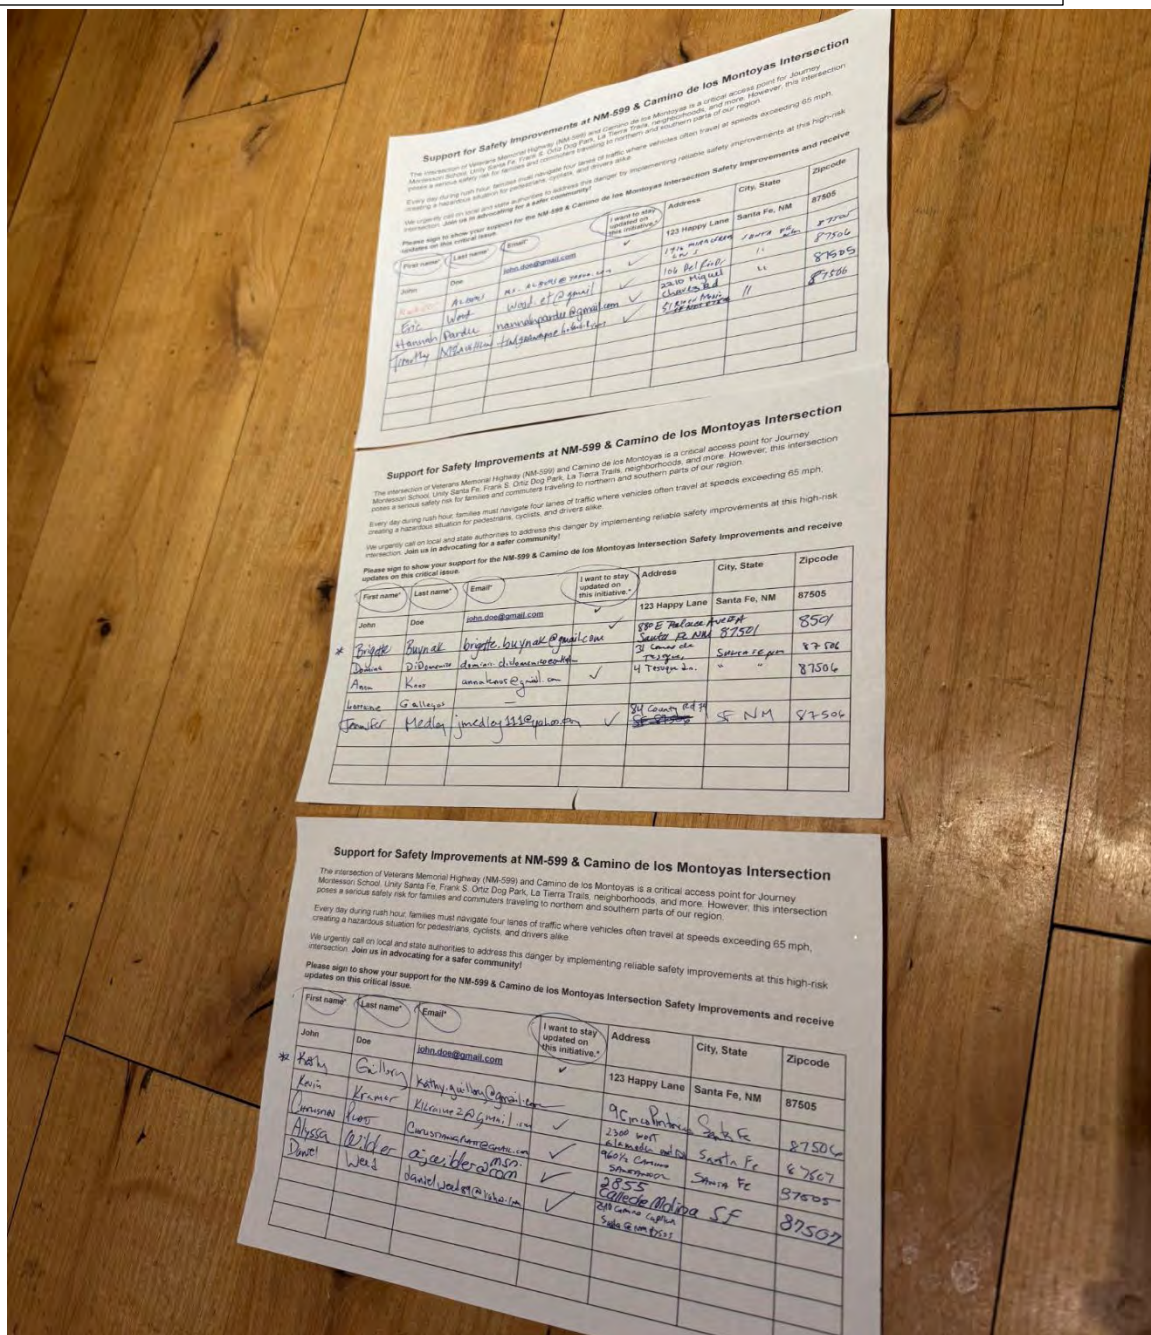 Support for Safety Improvements at NM-599 & Camino de los Montoyas Intersection
The intersection of Veterans Memorial Highway (NM-599) and Camino de los Montoyas is a critical access point for Journey
Montessori School, Unity Santa Fe, Frank S. Ortiz Dog Park, La Tierra Trails, neighborhoods, and more. However, this intersection
poses a serious safety risk for families and commuters traveling to northern and southern parts of our region.
Every day during rush hour, families must navigate four lanes of traffic where vehicles often travel at speeds exceeding 65 mph,
creating a hazardous situation for pedestrians, cyclists, and drivers alike.
We urgently call on local and state authorities to address this danger by implementing reliable safety improvements at this high-risk
intersection. Join us in advocating for a safer community!
Please sign to show your support for the NM-599 & Camino de los Montoyas Intersection Safety Improvements and receive
updates on this critical issue.
First name* Last name* Email* I want to stay updated on this initiative.* Address City, State Zipcode
John Doe john.doe@gmail.com ✓ 123 Happy Lane Santa Fe, NM 87505
✓ Santa Fe 87505
Eric Wood wood.et@gmail ✓ 106 Del Rio Dr " 87506
Hannah Pardee hannahpardee@gmail.com ✓ 2210 Miguel Chavez Rd " 87505
Timothy ✓ " 87506
Support for Safety Improvements at NM-599 & Camino de los Montoyas Intersection
The intersection of Veterans Memorial Highway (NM-599) and Camino de los Montoyas is a critical access point for Journey
Montessori School, Unity Santa Fe, Frank S. Ortiz Dog Park, La Tierra Trails, neighborhoods, and more. However, this intersection
poses a serious safety risk for families and commuters traveling to northern and southern parts of our region.
Every day during rush hour, families must navigate four lanes of traffic where vehicles often travel at speeds exceeding 65 mph,
creating a hazardous situation for pedestrians, cyclists, and drivers alike.
We urgently call on local and state authorities to address this danger by implementing reliable safety improvements at this high-risk
intersection. Join us in advocating for a safer community!
Please sign to show your support for the NM-599 & Camino de los Montoyas Intersection Safety Improvements and receive
updates on this critical issue.
First name* Last name* Email* I want to stay updated on this initiative.* Address City, State Zipcode
John Doe john.doe@gmail.com ✓ 123 Happy Lane Santa Fe, NM 87505
* Brigette Buynak brigette.buynak@gmail.com ✓ 880 E Palace Ave #A Santa Fe NM 87501 8501
DiDomenico Tesuque, Santa Fe 87506
Anna Knox annaknox@gmail.com ✓ 4 Tesuque Ln. " " 87506
Lorraine Gallegos —
Jennifer Medley jmedley111@yahoo.com ✓ 84 County Rd SF NM 87506
Support for Safety Improvements at NM-599 & Camino de los Montoyas Intersection
The intersection of Veterans Memorial Highway (NM-599) and Camino de los Montoyas is a critical access point for Journey
Montessori School, Unity Santa Fe, Frank S. Ortiz Dog Park, La Tierra Trails, neighborhoods, and more. However, this intersection
poses a serious safety risk for families and commuters traveling to northern and southern parts of our region.
Every day during rush hour, families must navigate four lanes of traffic where vehicles often travel at speeds exceeding 65 mph,
creating a hazardous situation for pedestrians, cyclists, and drivers alike.
We urgently call on local and state authorities to address this danger by implementing reliable safety improvements at this high-risk
intersection. Join us in advocating for a safer community!
Please sign to show your support for the NM-599 & Camino de los Montoyas Intersection Safety Improvements and receive
updates on this critical issue.
First name* Last name* Email* I want to stay updated on this initiative.* Address City, State Zipcode
John Doe john.doe@gmail.com ✓ 123 Happy Lane Santa Fe, NM 87505
* Kathy Guillory kathy.guillory@gmail.com Santa Fe 87506
Kevin Kramer ✓ 2300 West Alameda Santa Fe 87507
✓ 960½ Camino Santander Santa Fe 87505
Alyssa Wilder ajwilder@msn.com ✓ 2855 Calle de Molina SF 87507
Daniel Weed danielweed89@yahoo.com ✓ Camino Santa Fe NM